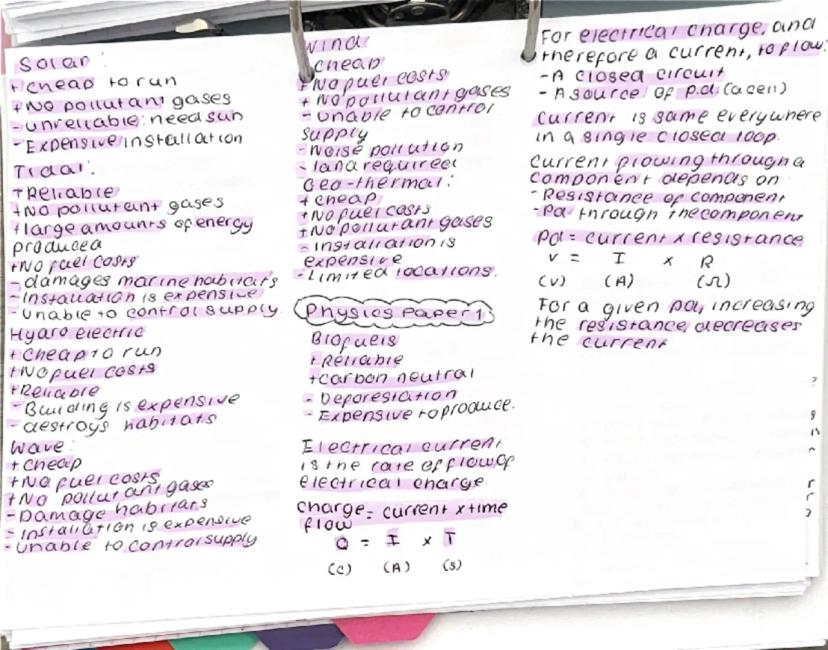 Solar:
+ cheap to run
+ No pollutant gases
- unreliable: need sun
- Expensive installation
Tidal:
+ Reliable
+ No pollutant gases
+ large amounts of energy
produced
+ No fuel costs
- damages marine habitats
- Installation is expensive
- unable to control supply.
Hydro electric
+ cheap to run
+ No fuel costs
+ Reliable
- Building is expensive
- destroys habitats
Wave:
+ cheap
+ No fuel costs
+ No pollutant gases
- Damage habitats
- Installation is expensive
- unable to control supply
Wind:
cheap
+ No fuel costs
+ No pollutant gases
- unable to control
supply
- Noise pollution
- land required
Geo-thermal:
+ cheap
+ No fuel costs
+ No pollutant gases
- installation is
expensive
- Limited locations.
Physics Paper 1:
Biofuels
+ Reliable
+ carbon neutral
- Deforestation
- Expensive to produce.
Electrical current
is the rate of flow of
electrical charge
charge = current x time
flow
Q = I x T
(C) (A) (s)
For electrical charge, and
therefore a current, to flow:
- A closed circuit
- A source of p.d. (a cell)
current is same everywhere
in a single closed loop.
current flowing through a
component depends on
- Resistance of component
- Pd through the component
pd = current x resistance
V = I x R
(V) (A) (Ω)
For a given pd, increasing
the resistance decreases
the current